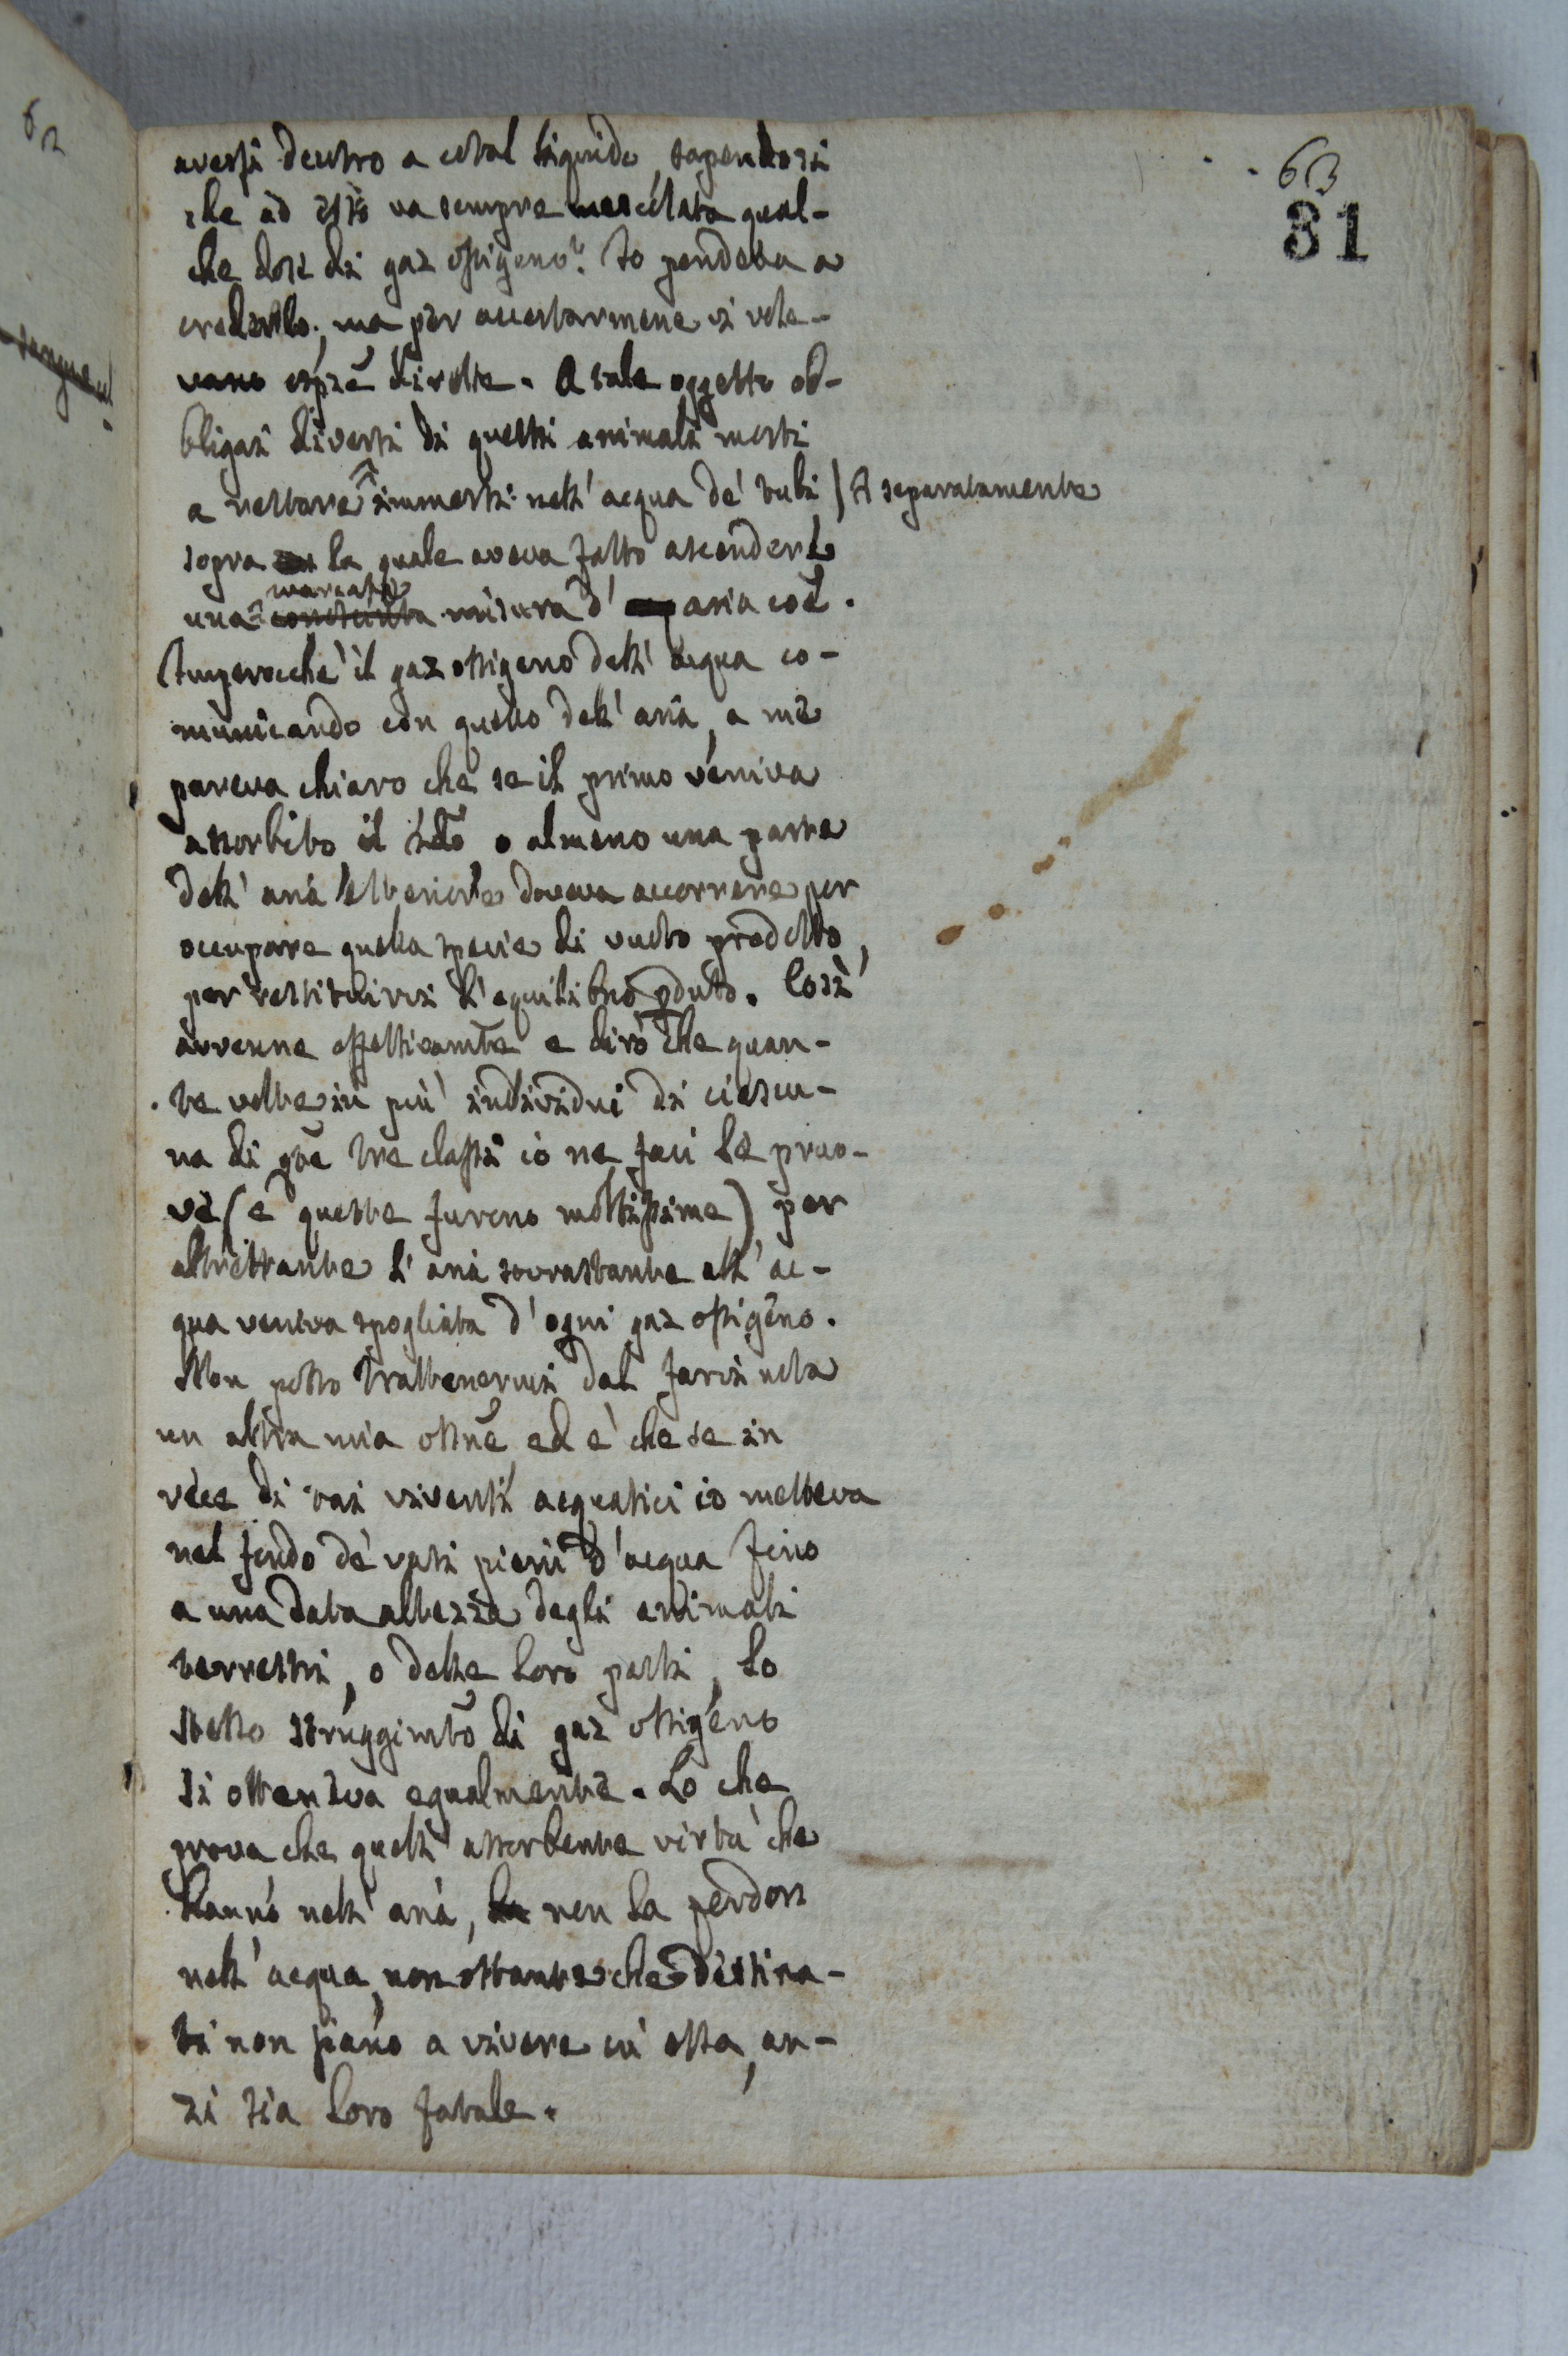 63
81
aversi dentro a cotal liquido, sapendosi
che ad esso va sempre mescolata qual-
che dose di gaz ossigeno? Io pendeva a
crederlo; ma per accertarmene vi vole-
vano espze dirette. A tale oggetto ob-
bligai diversi di questi animali morti
a restare ^ immersi nell' acqua de' tubi / A separatamente
sopra la quale aveva fatto ascendere
marcata
una conosciuta misura d' aria coe.
Imperocchè il gaz ossigeno dell' acqua co-
municando con quello dell' aria, a me
pareva chiaro che se il primo veniva
assorbito il 2do o almeno una parte
dell' aria esteriore doveva accorrere per
occupare quella specie di vuoto prodotto,
per restituirsi l' equilibrio pduto. Così
avvenne effettivamte e dirò che quan-
te volte in più individui di ciascu-
na di qte tre classi io ne feci le pruo-
ve (e queste furono moltissime) per
altrettante l' aria sovrastante all' ac-
qua veniva spogliata d' ogni gaz ossigeno.
Non posso trattenermi dal farvi nota
un altra mia ossne, ed è che se in
vece di tai viventi acquatici io metteva
nel fondo de' vasi pieni d' acqua fino
a una data altezza degli animali
terrestri, o delle loro parti, lo
stesso struggimto di gaz ossigeno
si otteneva egualmente. Lo che
prova che quell' assorbente virtù che
hanno nell' aria, non la perdon
nell' acqua, non ostante che destina-
ti non siano a vivere in essa, an-
zi sia loro fatale.